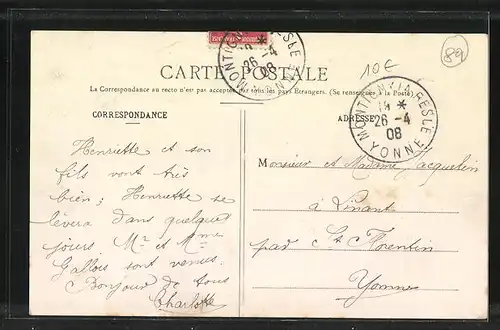 89
10€
CARTE POSTALE
La Correspondance au recto n'est pas acceptée par tous les pays Étrangers. (Se renseigner à la Poste)
CORRESPONDANCE
ADRESSE
MONTIGNY-LA-RESLE
26-4
08
YONNE
Henriette et son
fils vont très
bien; Henriette se
lèvera dans quelques
jours Mr et Mme
Gallois sont venus.
Bonjour de tous
Charlotte
Monsieur et Madame Jacquelin
à
par St Florentin
Yonne